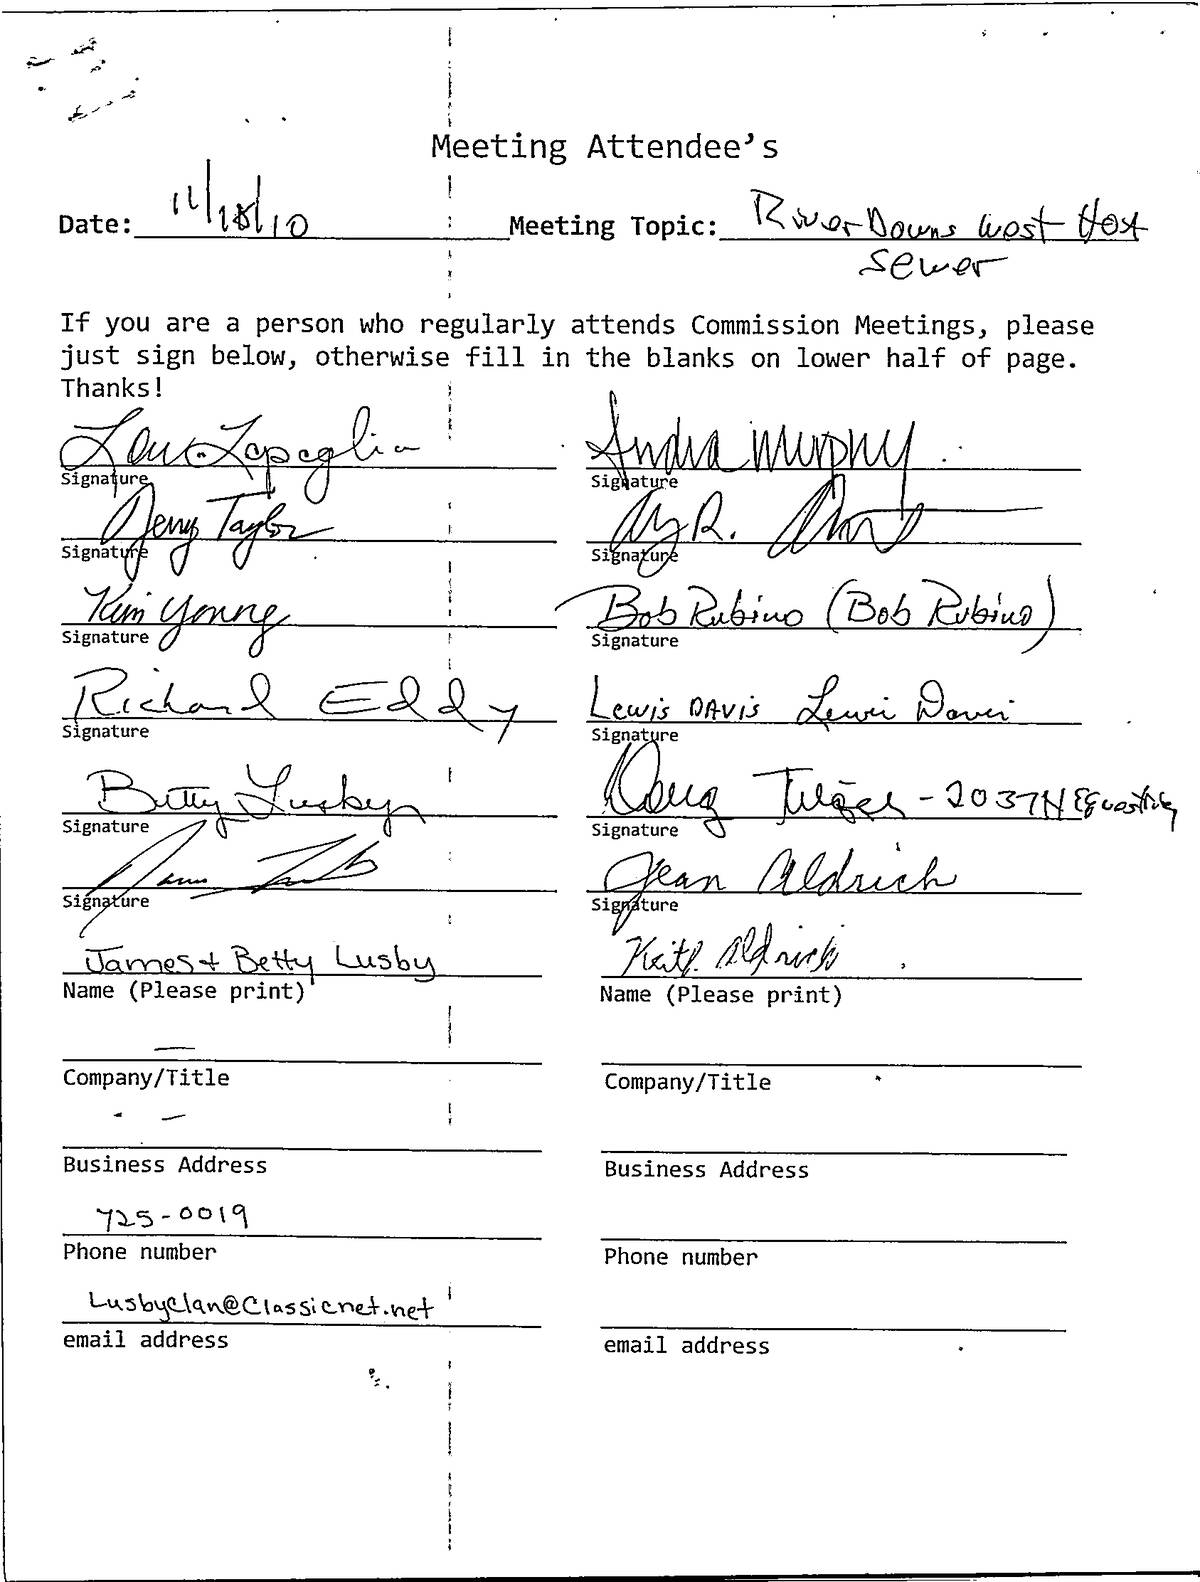 Meeting Attendee's
Date: 11/18/10 Meeting Topic: River Downs West Host
Sewer
If you are a person who regularly attends Commission Meetings, please
just sign below, otherwise fill in the blanks on lower half of page.
Thanks!
Lou Lapaglia
Signature
Andra Murphy
Signature
Jerry Taylor
Signature
R.
Signature
Kim Young
Signature
Bob Rubino (Bob Rubino)
Signature
Richard Eddy
Signature
Lewis DAVIS Lewis Davis
Signature
Betty Lusby
Signature
Doug - 2037 N Equestrian
Signature
James
Signature
Jean Aldrich
Signature
James + Betty Lusby
Name (Please print)
Keith Aldrich
Name (Please print)
—
Company/Title
Company/Title
- —
Business Address
Business Address
725-0019
Phone number
Phone number
LusbyClan@Classicnet.net
email address
email address